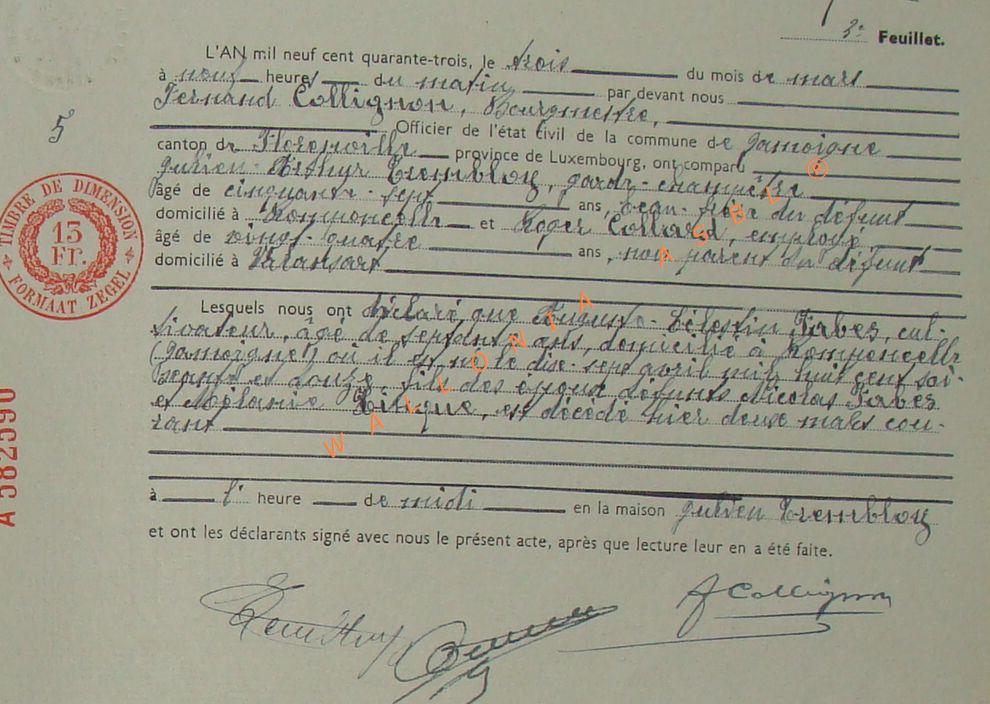 3e Feuillet.
L'AN mil neuf cent quarante-trois, le trois du mois de mars
à neuf heures du matin par devant nous
Fernand Collignon, Bourgmestre,
5
Officier de l'état civil de la commune de Jamoigne
canton de Florenville province de Luxembourg, ont comparu
Julien-Arthur Trembloy, garde-champêtre
âgé de cinquante-sept ans, beau-frère du défunt
domicilié à Romponcelle et Roger Collard, employé
âgé de vingt-quatre ans, non parent du défunt
domicilié à Valansart
Lesquels nous ont déclaré que Auguste-Célestin Firbes, cul-
tivateur, âgé de septante ans, domicilié à Romponcelle
(Jamoigne) où il est né le dix-sept avril mil huit cent soi-
xante et douze, fils des époux défunts Nicolas Firbes
et Mélanie, est décédé hier deux mars cou-
rant
à l' heure de midi en la maison Julien Trembloy
et ont les déclarants signé avec nous le présent acte, après que lecture leur en a été faite.
Collignon
TIMBRE DE DIMENSION
15
Fr.
FORMAAT ZEGEL
A 582590
WALLONIA ASBL ©